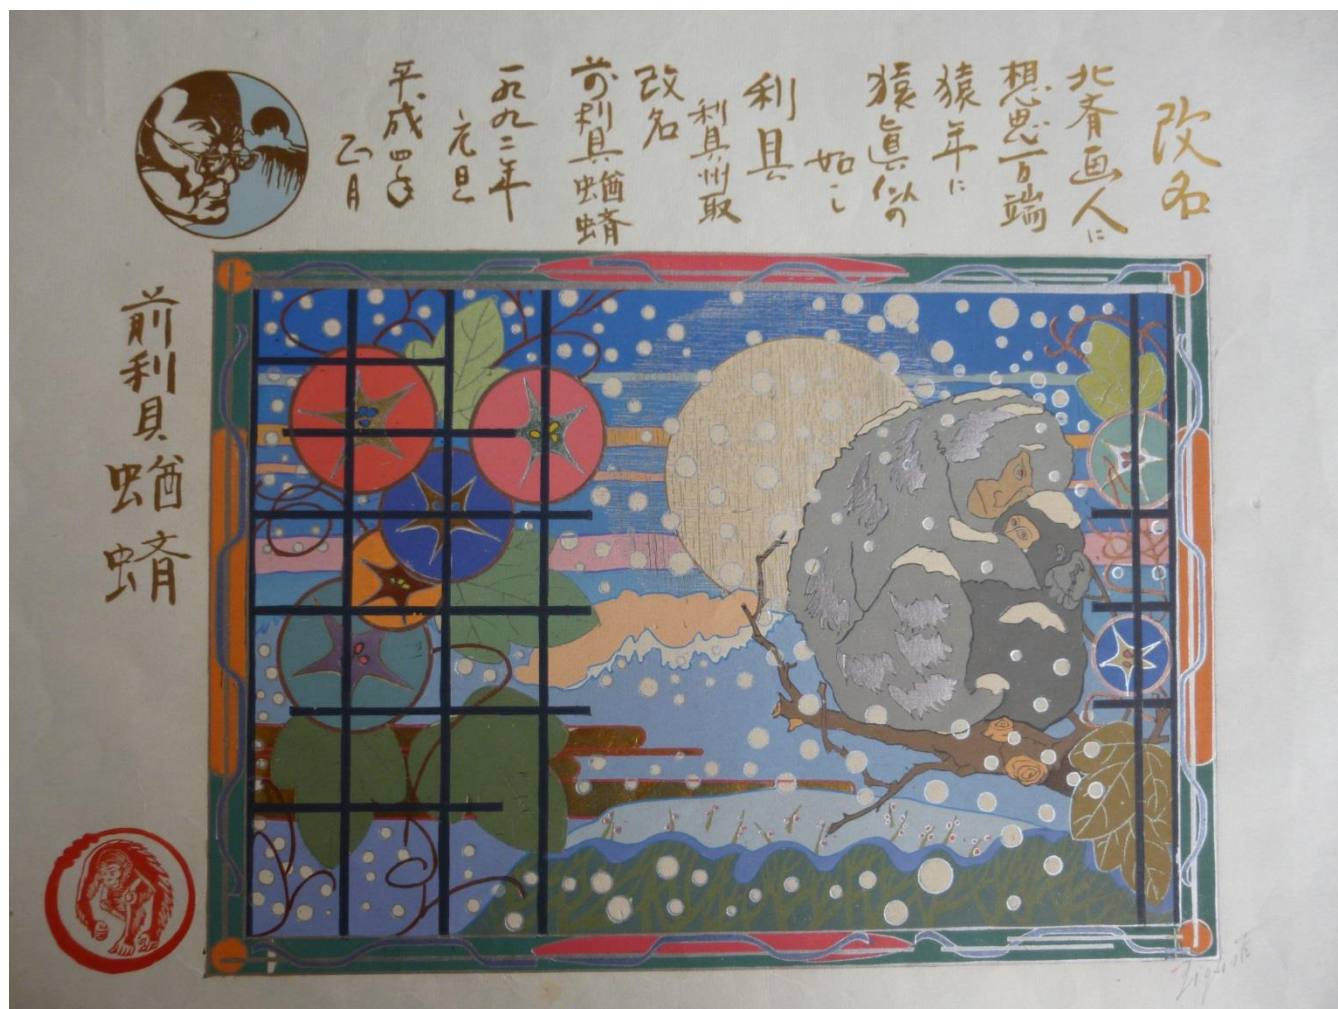 改名
北斎画人に
想思百端
猿年に
猿真似の
如し
利具
利具州取
改名
前利具蝤蠐
一九九二年
元旦
平成四年
正月
前利具蝤蠐